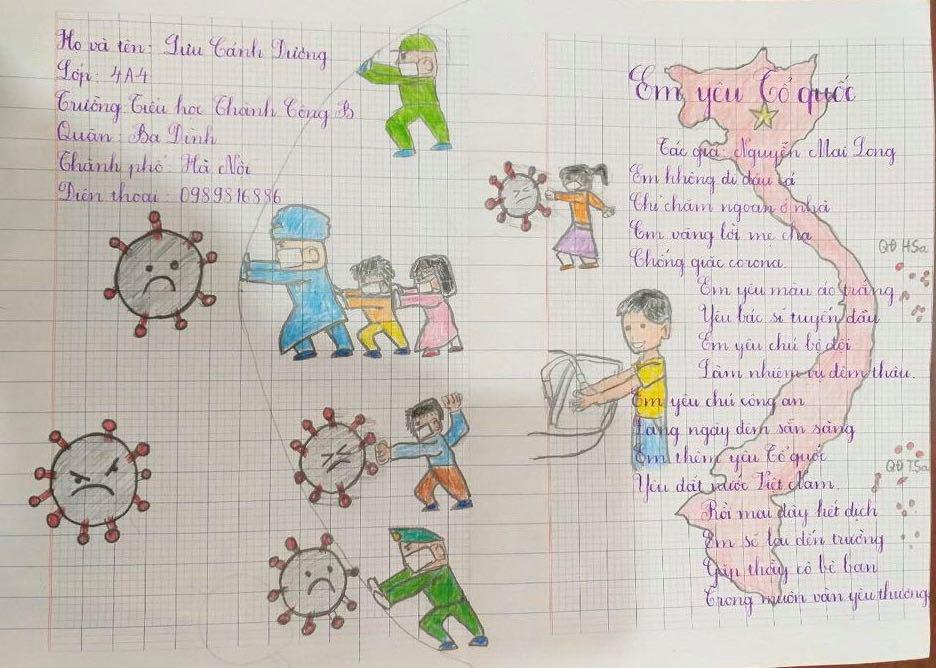 Họ và tên: Lưu Cảnh Dương
Lớp: 4A4
Trường Tiểu học Thành Công B
Quận: Ba Đình
Thành phố: Hà Nội
Điện thoại: 0989816886
Em yêu Tổ quốc
Tác giả: Nguyễn Mai Long
Em không đi đâu cả
Chỉ chăm ngoan ở nhà
Em vâng lời mẹ cha
Chống giặc corona.
Em yêu màu áo trắng
Yêu bác sĩ tuyến đầu
Em yêu chú bộ đội
Làm nhiệm vụ đêm thâu.
Em yêu chú công an
ngày đêm sẵn sàng
Em thêm yêu Tổ quốc
Yêu đất nước Việt Nam.
Rồi mai đây hết dịch
Em sẽ lại đến trường
Gặp thầy cô bè bạn
Trong muôn vàn yêu thương
QĐ HSa
QĐ TSa